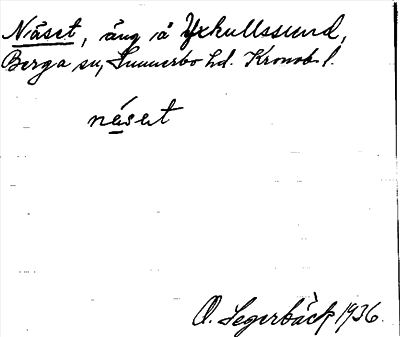 Näset, äng å Yxkullssund,
Berga sn, Sunnerbo hd. Kronob. l.
näset
O. Segerbäck 1936.